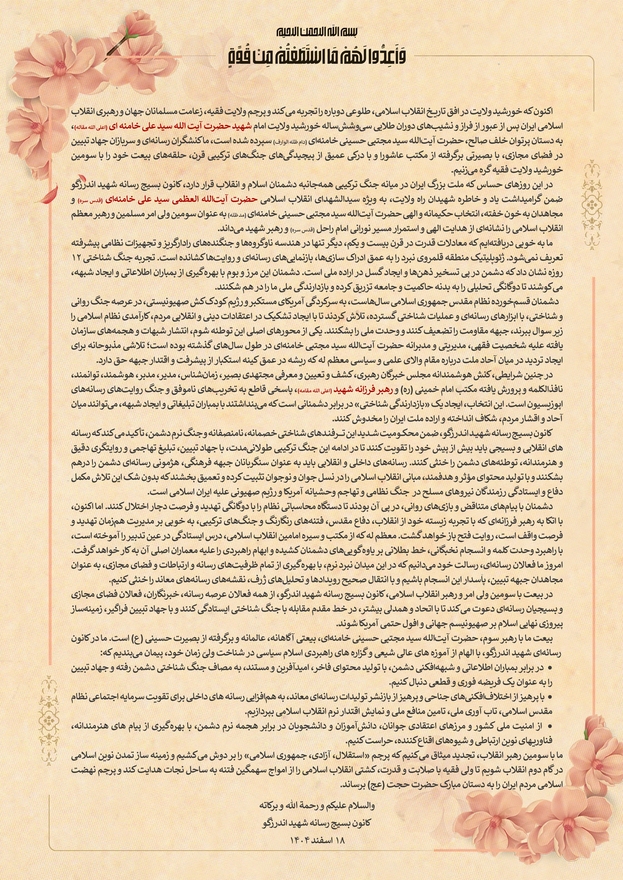 بسم الله الرحمن الرحیم
وَأَعِدُّوا لَهُمْ مَا اسْتَطَعْتُمْ مِنْ قُوَّةٍ
اکنون که خورشید ولایت در افق تاریخ انقلاب اسلامی، طلوعی دوباره را تجربه می‌کند و پرچم ولایت فقیه، زعامت مسلمانان جهان و رهبری انقلاب
اسلامی ایران پس از عبور از فراز و نشیب‌های دوران طلایی سی‌وشش‌ساله خورشید ولایت امام شهید حضرت آیت الله سید علی خامنه ای (اعلی الله مقامه)،
به دستان پرتوان خلف صالح، حضرت آیت‌الله سید مجتبی حسینی خامنه‌ای سپرده شده است، ما کنشگران رسانه‌ای و سربازان جهاد تبیین
در فضای مجازی، با بصیرتی برگرفته از مکتب عاشورا و با درکی عمیق از پیچیدگی‌های جنگ‌های ترکیبی قرن، حلقه‌های بیعت خود را با سومین
خورشید ولایت فقیه گره می‌زنیم.
در این روزهای حساس که ملت بزرگ ایران در میانه جنگ ترکیبی همه‌جانبه دشمنان اسلام و انقلاب قرار دارد، کانون بسیج رسانه شهید اندرزگو
ضمن گرامیداشت یاد و خاطره شهیدان راه ولایت، به ویژه سیدالشهدای انقلاب اسلامی حضرت آیت‌الله العظمی سید علی خامنه‌ای (قدس سره) و
مجاهدان به خون خفته، انتخاب حکیمانه و الهی حضرت آیت‌الله سید مجتبی حسینی خامنه‌ای (مدظله) به عنوان سومین ولی امر مسلمین و رهبر معظم
انقلاب اسلامی را نشانه‌ای از هدایت الهی و استمرار مسیر نورانی امام راحل (قدس سره) و رهبر شهید می‌داند.
ما به خوبی دریافته‌ایم که معادلات قدرت در قرن بیست و یکم، دیگر تنها در هندسه ناوگروه‌ها و جنگنده‌های رادارگریز و تجهیزات نظامی پیشرفته
تعریف نمی‌شود. ژئوپلیتیک منطقه قلمروی نبرد را به عمق ادراک سازی‌ها، بازنمایی‌های رسانه‌ای و روایت‌ها کشانده است. تجربه جنگ شناختی ۱۲
روزه نشان داد که دشمن در پی تسخیر ذهن‌ها و ایجاد گسل در اراده ملی است. دشمنان این مرز و بوم با بهره‌گیری از بمباران اطلاعاتی و ایجاد شبهه،
می‌کوشند تا دوگانگی تحلیلی را به بدنه حاکمیت و جامعه تزریق کرده و بازدارندگی ملی ما را در هم شکنند.
دشمنان قسم‌خورده نظام مقدس جمهوری اسلامی سال‌هاست، به سرکردگی آمریکای مستکبر و رژیم کودک‌کش صهیونیستی، در عرصه جنگ روانی
و شناختی، با ابزارهای رسانه‌ای و عملیات شناختی گسترده، تلاش کردند تا با ایجاد تشکیک در اعتقادات دینی و انقلابی مردم، کارآمدی نظام اسلامی را
زیر سوال ببرند، جبهه مقاومت را تضعیف کنند و وحدت ملی را بشکنند. یکی از محورهای اصلی این توطئه شوم، انتشار شبهات و هجمه‌های سازمان
یافته علیه شخصیت فقهی، مدیریتی و مدبرانه حضرت آیت‌الله سید مجتبی حسینی خامنه‌ای در طول سال‌های گذشته بوده است؛ تلاشی مذبوحانه برای
ایجاد تردید در میان آحاد ملت درباره مقام والای علمی و سیاسی معظم له که ریشه در عمق کینه استکبار از پیشرفت و اقتدار جبهه حق دارد.
در چنین شرایطی، کنش هوشمندانه مجلس خبرگان رهبری، کشف و تعیین و معرفی مجتهدی بصیر، زمان‌شناس، مدیر، مدبر، هوشمند، توانمند،
نافذالکلمه و پرورش یافته مکتب امام خمینی (ره) و رهبر فرزانه شهید (اعلی الله مقامه) پاسخی قاطع به تخریب‌های ناموفق و جنگ روایت‌های رسانه‌های
اپوزیسیون است. این انتخاب، ایجاد یک «بازدارندگی شناختی» در برابر دشمنانی است که می‌پنداشتند با بمباران تبلیغاتی و ایجاد شبهه، می‌توانند میان
آحاد و اقشار مردم، شکاف انداخته و اراده ملت ایران را مخدوش کنند.
کانون بسیج رسانه شهید اندرزگو، ضمن محکومیت شدید این ترفندهای شناختی خصمانه، نامنصفانه و جنگ نرم دشمن، تأکید می‌کند که رسانه
های انقلابی و بسیجی باید بیش از پیش خود را تقویت کنند تا در ادامه این جنگ ترکیبی طولانی‌مدت، با جهاد تبیین، تبلیغ تهاجمی و روایتگری دقیق
و هنرمندانه، توطئه‌های دشمن را خنثی کنند. رسانه‌های داخلی و انقلابی باید به عنوان سنگربانان جبهه فرهنگی، هژمونی رسانه‌ای دشمن را درهم
بشکنند و با تولید محتوای مؤثر و هدفمند، مبانی انقلاب اسلامی را در نسل جوان و نوجوان تثبیت کرده و تعمیق بخشند که بدون شک این تلاش مکمل
دفاع و ایستادگی رزمندگان نیروهای مسلح در جنگ نظامی و تهاجم وحشیانه آمریکا و رژیم صهیونی علیه ایران اسلامی است.
دشمنان با پیام‌های متناقض و بازی‌های روانی، در پی آن بودند تا دستگاه محاسباتی نظام را با دوگانگی تهدید و فرصت دچار اختلال کنند. اما اکنون،
با اتکا به رهبر فرزانه‌ای که با تجربه زیسته خود از انقلاب، دفاع مقدس، فتنه‌های رنگارنگ و جنگ‌های ترکیبی، به خوبی بر مدیریت همزمان تهدید و
فرصت واقف است، روایت فتح باز خواهد گشت. معظم له که از مکتب و سیره امامین انقلاب اسلامی، درس ایستادگی در عین تدبیر را آموخته است،
با راهبرد وحدت کلمه و انسجام نخبگانی، خط بطلانی بر یاوه‌گویی‌های دشمنان کشیده و ابهام راهبردی را علیه معماران اصلی آن به کار خواهد گرفت.
امروز ما فعالان رسانه‌ای، رسالت خود می‌دانیم که در این میدان نبرد نرم، با بهره‌گیری از تمام ظرفیت‌های رسانه و ارتباطات و فضای مجازی، به عنوان
مجاهدان جبهه تبیین، پاسدار این انسجام باشیم و با انتقال صحیح رویدادها و تحلیل‌های ژرف، نقشه‌های رسانه‌های معاند را خنثی کنیم.
در بیعت با سومین ولی امر و رهبر انقلاب اسلامی، کانون بسیج رسانه شهید اندرگو، از همه فعالان عرصه رسانه، خبرنگاران، فعالان فضای مجازی
و بسیجیان رسانه‌ای دعوت می‌کند تا با اتحاد و همدلی بیشتر، در خط مقدم مقابله با جنگ شناختی ایستادگی کنند و با جهاد تبیین فراگیر، زمینه‌ساز
پیروزی نهایی اسلام بر صهیونیسم جهانی و افول حتمی آمریکا شوند.
بیعت ما با رهبر سوم، حضرت آیت‌الله سید مجتبی حسینی خامنه‌ای، بیعتی آگاهانه، عالمانه و برگرفته از بصیرت حسینی (ع) است. ما در کانون
رسانه‌ای شهید اندرزگو، با الهام از آموزه های عالی شیعی و گزاره های راهبردی اسلام سیاسی در شناخت ولی زمان خود، پیمان می‌بندیم که:
• در برابر بمباران اطلاعاتی و شبهه‌افکنی دشمن، با تولید محتوای فاخر، امیدآفرین و مستند، به مصاف جنگ شناختی دشمن رفته و جهاد تبیین
را به عنوان یک فریضه فوری و قطعی دنبال کنیم.
• با پرهیز از اختلاف‌افکنی‌های جناحی و پرهیز از بازنشر تولیدات رسانه‌ای معاند، به هم‌افزایی رسانه های داخلی برای تقویت سرمایه اجتماعی نظام
مقدس اسلامی، تاب آوری ملی، تامین منافع ملی و نمایش اقتدار نرم انقلاب اسلامی بپردازیم.
• از امنیت ملی کشور و مرزهای اعتقادی جوانان، دانش‌آموزان و دانشجویان در برابر هجمه نرم دشمن، با بهره‌گیری از پیام های هنرمندانه،
فناوریهای نوین ارتباطی و شیوه‌های اقناع‌کننده، حراست کنیم.
ما با سومین رهبر انقلاب، تجدید میثاق می‌کنیم که پرچم «استقلال، آزادی، جمهوری اسلامی» را بر دوش می‌کشیم و زمینه ساز تمدن نوین اسلامی
در گام دوم انقلاب شویم تا ولی فقیه با صلابت و قدرت، کشتی انقلاب اسلامی را از امواج سهمگین فتنه به ساحل نجات هدایت کند و پرچم نهضت
اسلامی مردم ایران را به دستان مبارک حضرت حجت (عج) برساند.
والسلام علیکم و رحمة الله و برکاته
کانون بسیج رسانه شهید اندرزگو
۱۸ اسفند ۱۴۰۴